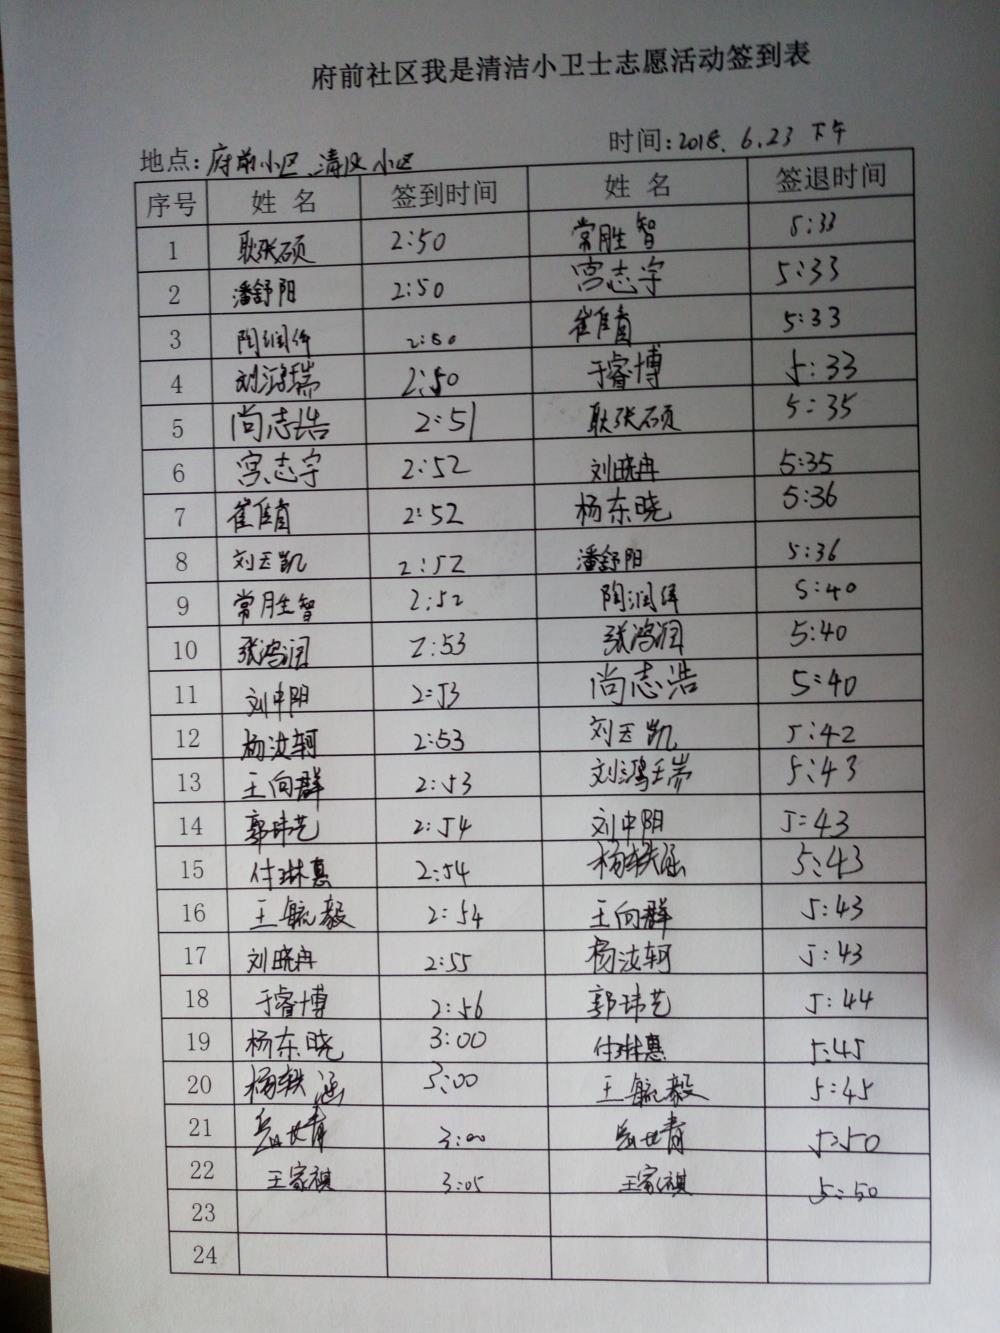 府前社区我是清洁小卫士志愿活动签到表
地点: 府前小区、清风小区 时间: 2018.6.23 下午
序号 姓名 签到时间 姓名 签退时间
1 耿张硕 2:50 常胜智 5:33
2 潘舒阳 2:50 宫志宇 5:33
3 陶润作 2:50 崔佳睿 5:33
4 刘鸿瑞 2:50 于睿博 5:33
5 尚志浩 2:51 耿张硕 5:35
6 宫志宇 2:52 刘晓冉 5:35
7 崔佳睿 2:52 杨东晓 5:36
8 刘云凯 2:52 潘舒阳 5:36
9 常胜智 2:52 陶润 5:40
10 张鸿润 2:53 张鸿润 5:40
11 刘中阳 2:53 尚志浩 5:40
12 杨汝轲 2:53 刘云凯 5:42
13 王向群 2:53 刘鸿瑞 5:43
14 郭玮艺 2:54 刘中阳 5:43
15 付琳惠 2:54 杨轶涵 5:43
16 王毓毅 2:54 王向群 5:43
17 刘晓冉 2:55 杨汝轲 5:43
18 于睿博 2:56 郭玮艺 5:44
19 杨东晓 3:00 付琳惠 5:45
20 杨轶涵 3:00 王毓毅 5:45
21 世青 3:00 世青 5:50
22 王家祺 3:05 王家祺 5:50
23
24